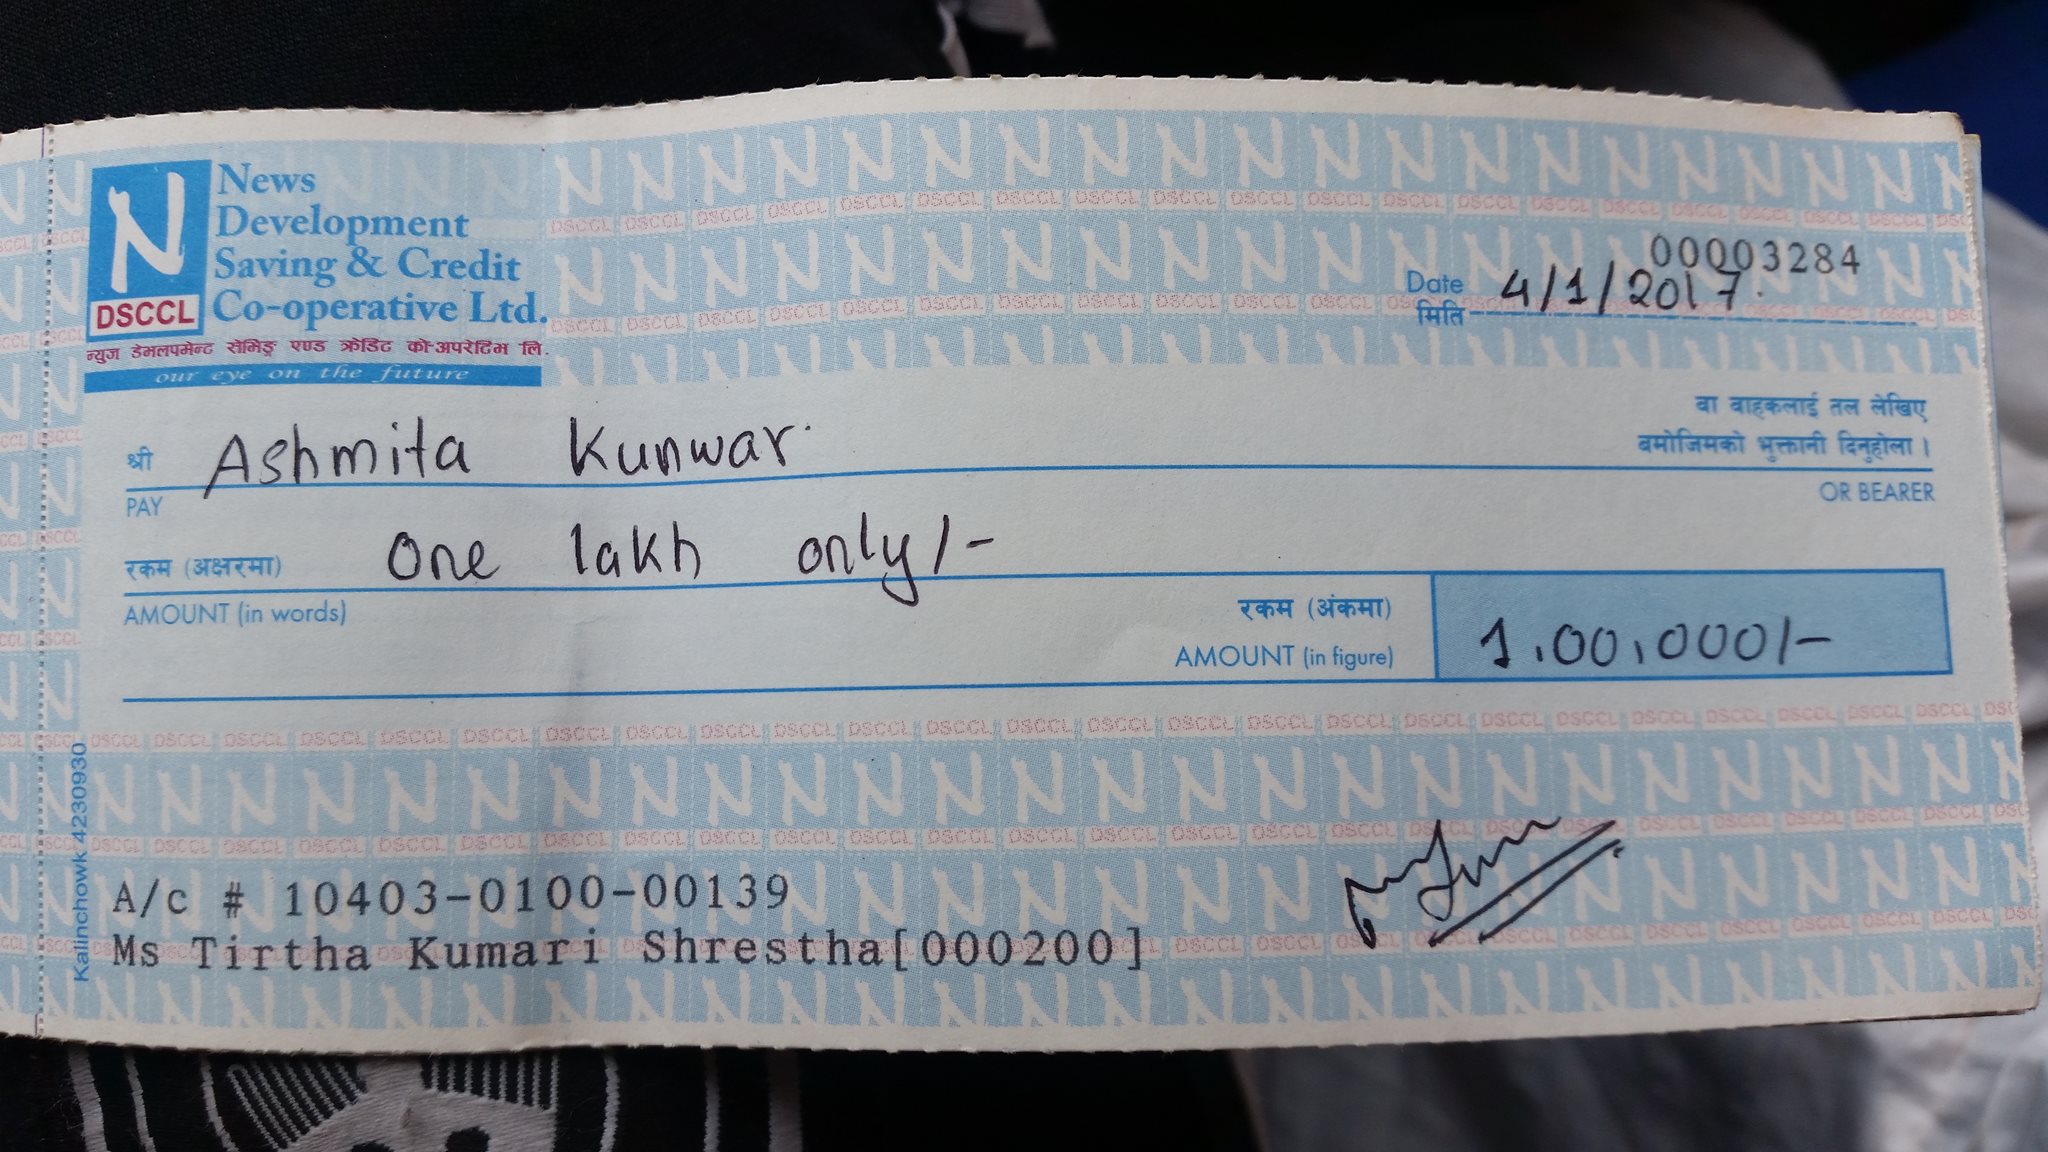 News
Development
Saving & Credit
Co-operative Ltd.
N
DSCCL
न्युज डेभलपमेन्ट सेभिङ्ग एण्ड क्रेडिट को-अपरेटिभ लि.
our eye on the future
00003284
Date 4/1/2017.
मिति
वा वाहकलाई तल लेखिए
बमोजिमको भुक्तानी दिनुहोला ।
श्री Ashmita Kunwar.
PAY
OR BEARER
रकम (अक्षरमा) One lakh only/-
AMOUNT (in words)
रकम (अंकमा)
AMOUNT (in figure) 1,00,000/-
Kalinchowk 4230930
A/c # 10403-0100-00139
Ms Tirtha Kumari Shrestha[000200]